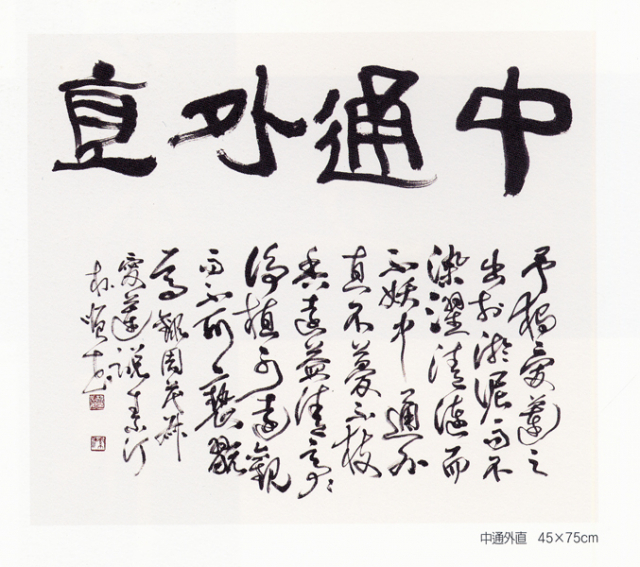 中通外直
予獨愛蓮之
出於淤泥而不
染濯清漣而
不妖中通外
直不蔓不枝
香遠益清亭〻
淨植可遠觀
而不可褻翫
焉 錄周茂叔
愛蓮說 素汀
中通外直 45×75cm